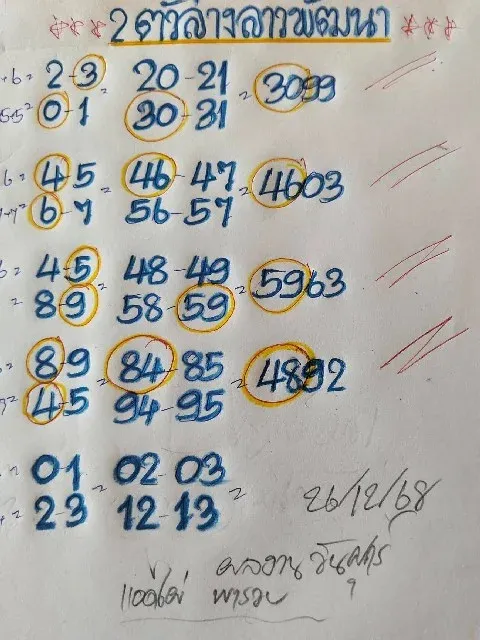 *** 2 ตัวล่างลาวพัฒนา ***
+6= 2-3 = 20-21 = 3099
5+5= 0-1 30-31
6= 4-5 = 46-47 = 4603
6-7 56-57
4-5 = 48-49 = 5963
= 8-9 58-59
8-9 = 84-85 = 4892
4-5 94-95
01 = 02-03 =
2-3 12-13
26/12/68
ผลงาน วันศุกร์
พารวย